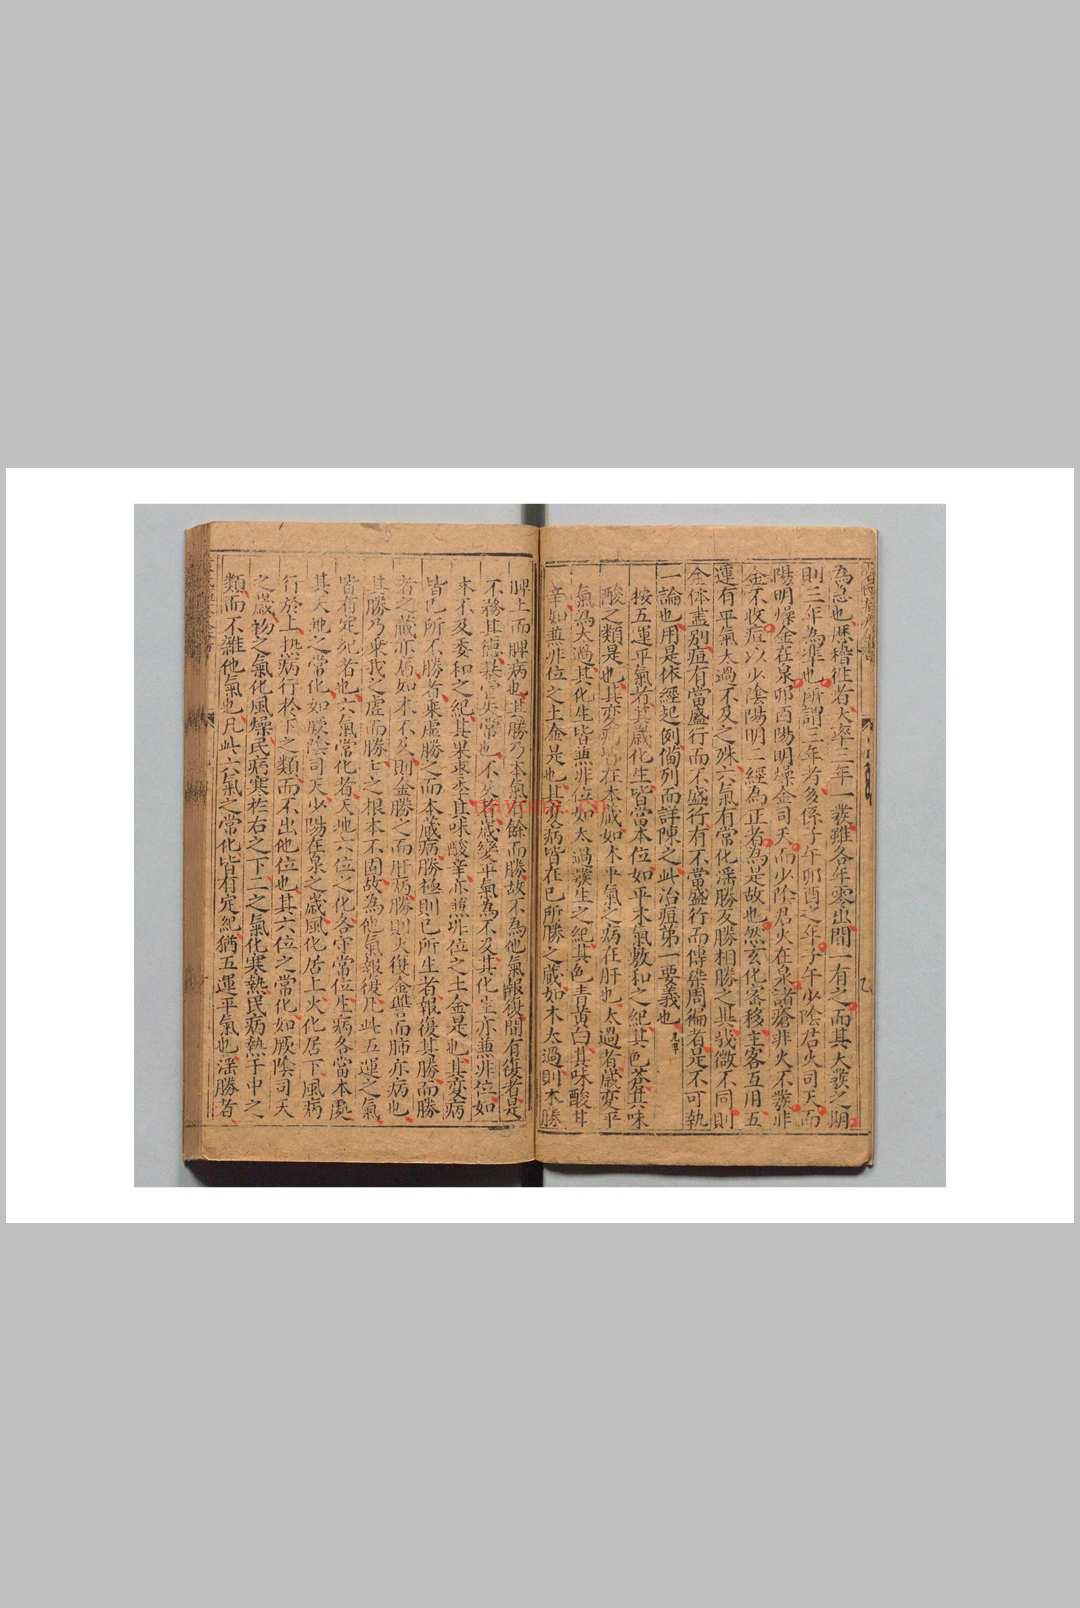 為急也歷稽往者大率三年一發雖各年零出間一有之而其大發之期
則三年為準也所謂三年者多係子午卯酉之年子午少陰君火司天而
陽明燥金在泉卯酉陽明燥金司天而少陰君火在泉諸瘡非火不發非
金不收痘以少陰陽明二經為正者為是故也然玄化密移主客互用五
運有平氣太過不及之殊六氣有常化淫勝反勝相勝之異或微不同則
全体盡別痘有當盛行而不盛行有不當盛行而傳染周徧者是不可執
一論也用是依經起例備列而詳陳之此治痘第一要義也
按五運平氣者其歲化生皆當本位如平木氣敷和之紀其色蒼其味
酸之類是也其変病皆在本歲如木平氣之病在肝也太過者歲変平
氣為太過其化生皆兼非位如太過發生之紀其色青黃白其味酸甘
辛如兼非位之土金是也其変病皆在已所勝之歲如木太過則木勝
脾土而脾病也其勝乃本氣有餘而勝故不為他氣報復間有復者是
不務其德暴虐失常也不及者歲變平氣為不及其化生亦兼非位如
木不及委和之紀其果棗李其味酸辛亦兼非位之土金是也其変病
皆已所不勝者乘虛勝之而本藏病勝極則已所生者報復其勝而勝
者之藏亦病如木不及則金勝之而肝病勝則火復金讐而肺亦病也
其勝乃乗我之虛而勝之根本不固故為他氣報復凡此五運之氣
皆有定紀者也六氣常化者天地六位之化各守常位生病各當本處
其天地之常化如厥陰司天少陽在泉之歲風化居上火化居下風病
行於上熱病行於下之類而不出他位也其六位之常化如厥陰司天
之歲初之氣化風燥民病寒於右之下二之氣化寒熱民病熱于中之
類而不雜他氣也凡此六氣之常化皆有定紀猶五運平氣也淫勝者
mayona.cn